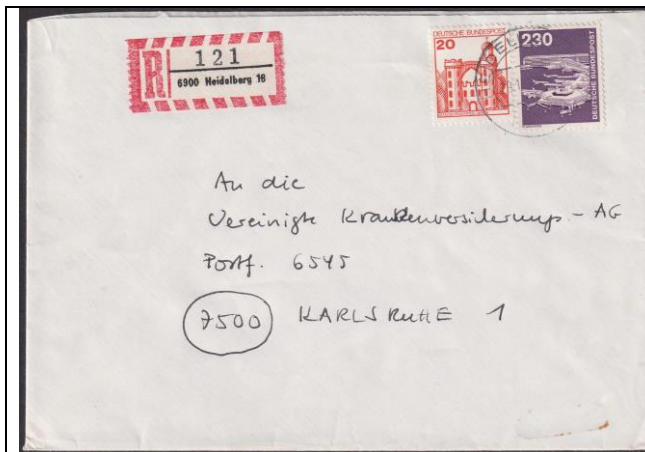 R
121
6900 Heidelberg 18
DEUTSCHE BUNDESPOST
20
230
DEUTSCHE BUNDESPOST
An die
Vereinigte Krankenversicherungs-AG
Postf. 6545
7500 KARLSRUHE 1